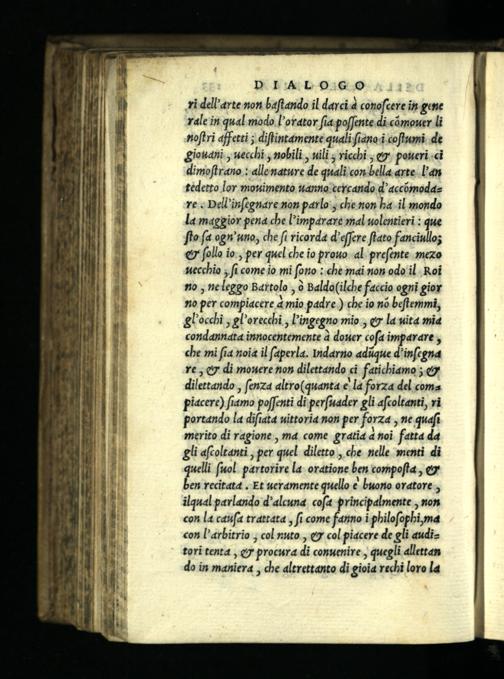 DIALOGO
ri dell'arte non bastando il darci à conoscere in gene
rale in qual modo l'orator sia possente di cõmouer li
nostri affetti; distintamente quali siano i costumi de
giouani, uecchi, nobili, uili, ricchi, & poueri ci
dimostrano: alle nature de quali con bella arte l'an
tedetto lor mouimento uanno cercando d'accõmoda=
re. Dell'insegnare non parlo, che non ha il mondo
la maggior pena che l'imparare mal uolentieri: que
sto sa ogn'uno, che si ricorda d'essere stato fanciullo;
& sollo io, per quel che io prouo al presente mezo
uecchio, si come io mi sono: che mai non odo il Roi
no, ne leggo Bartolo, ò Baldo (ilche faccio ogni gior
no per compiacere à mio padre) che io nõ bestemmi,
gl'occhi, gl'orecchi, l'ingegno mio, & la uita mia
condannata innocentemente à douer cosa imparare,
che mi sia noia il saperla. Indarno adũque d'insegna
re, & di mouere non dilettando ci fatichiamo; &
dilettando, senza altro (quanta è la forza del com=
piacere) siamo possenti di persuader gli ascoltanti, ri
portando la disiata uittoria non per forza, ne quasi
merito di ragione, ma come gratia à noi fatta da
gli ascoltanti, per quel diletto, che nelle menti di
quelli suol partorire la oratione ben composta, &
ben recitata. Et ueramente quello è buono oratore,
ilqual parlando d'alcuna cosa principalmente, non
con la causa trattata, si come fanno i philosophi, ma
con l'arbitrio, col nuto, & col piacere de gli audi=
tori tenta, & procura di conuenire, quegli allettan
do in maniera, che altrettanto di gioia rechi loro la